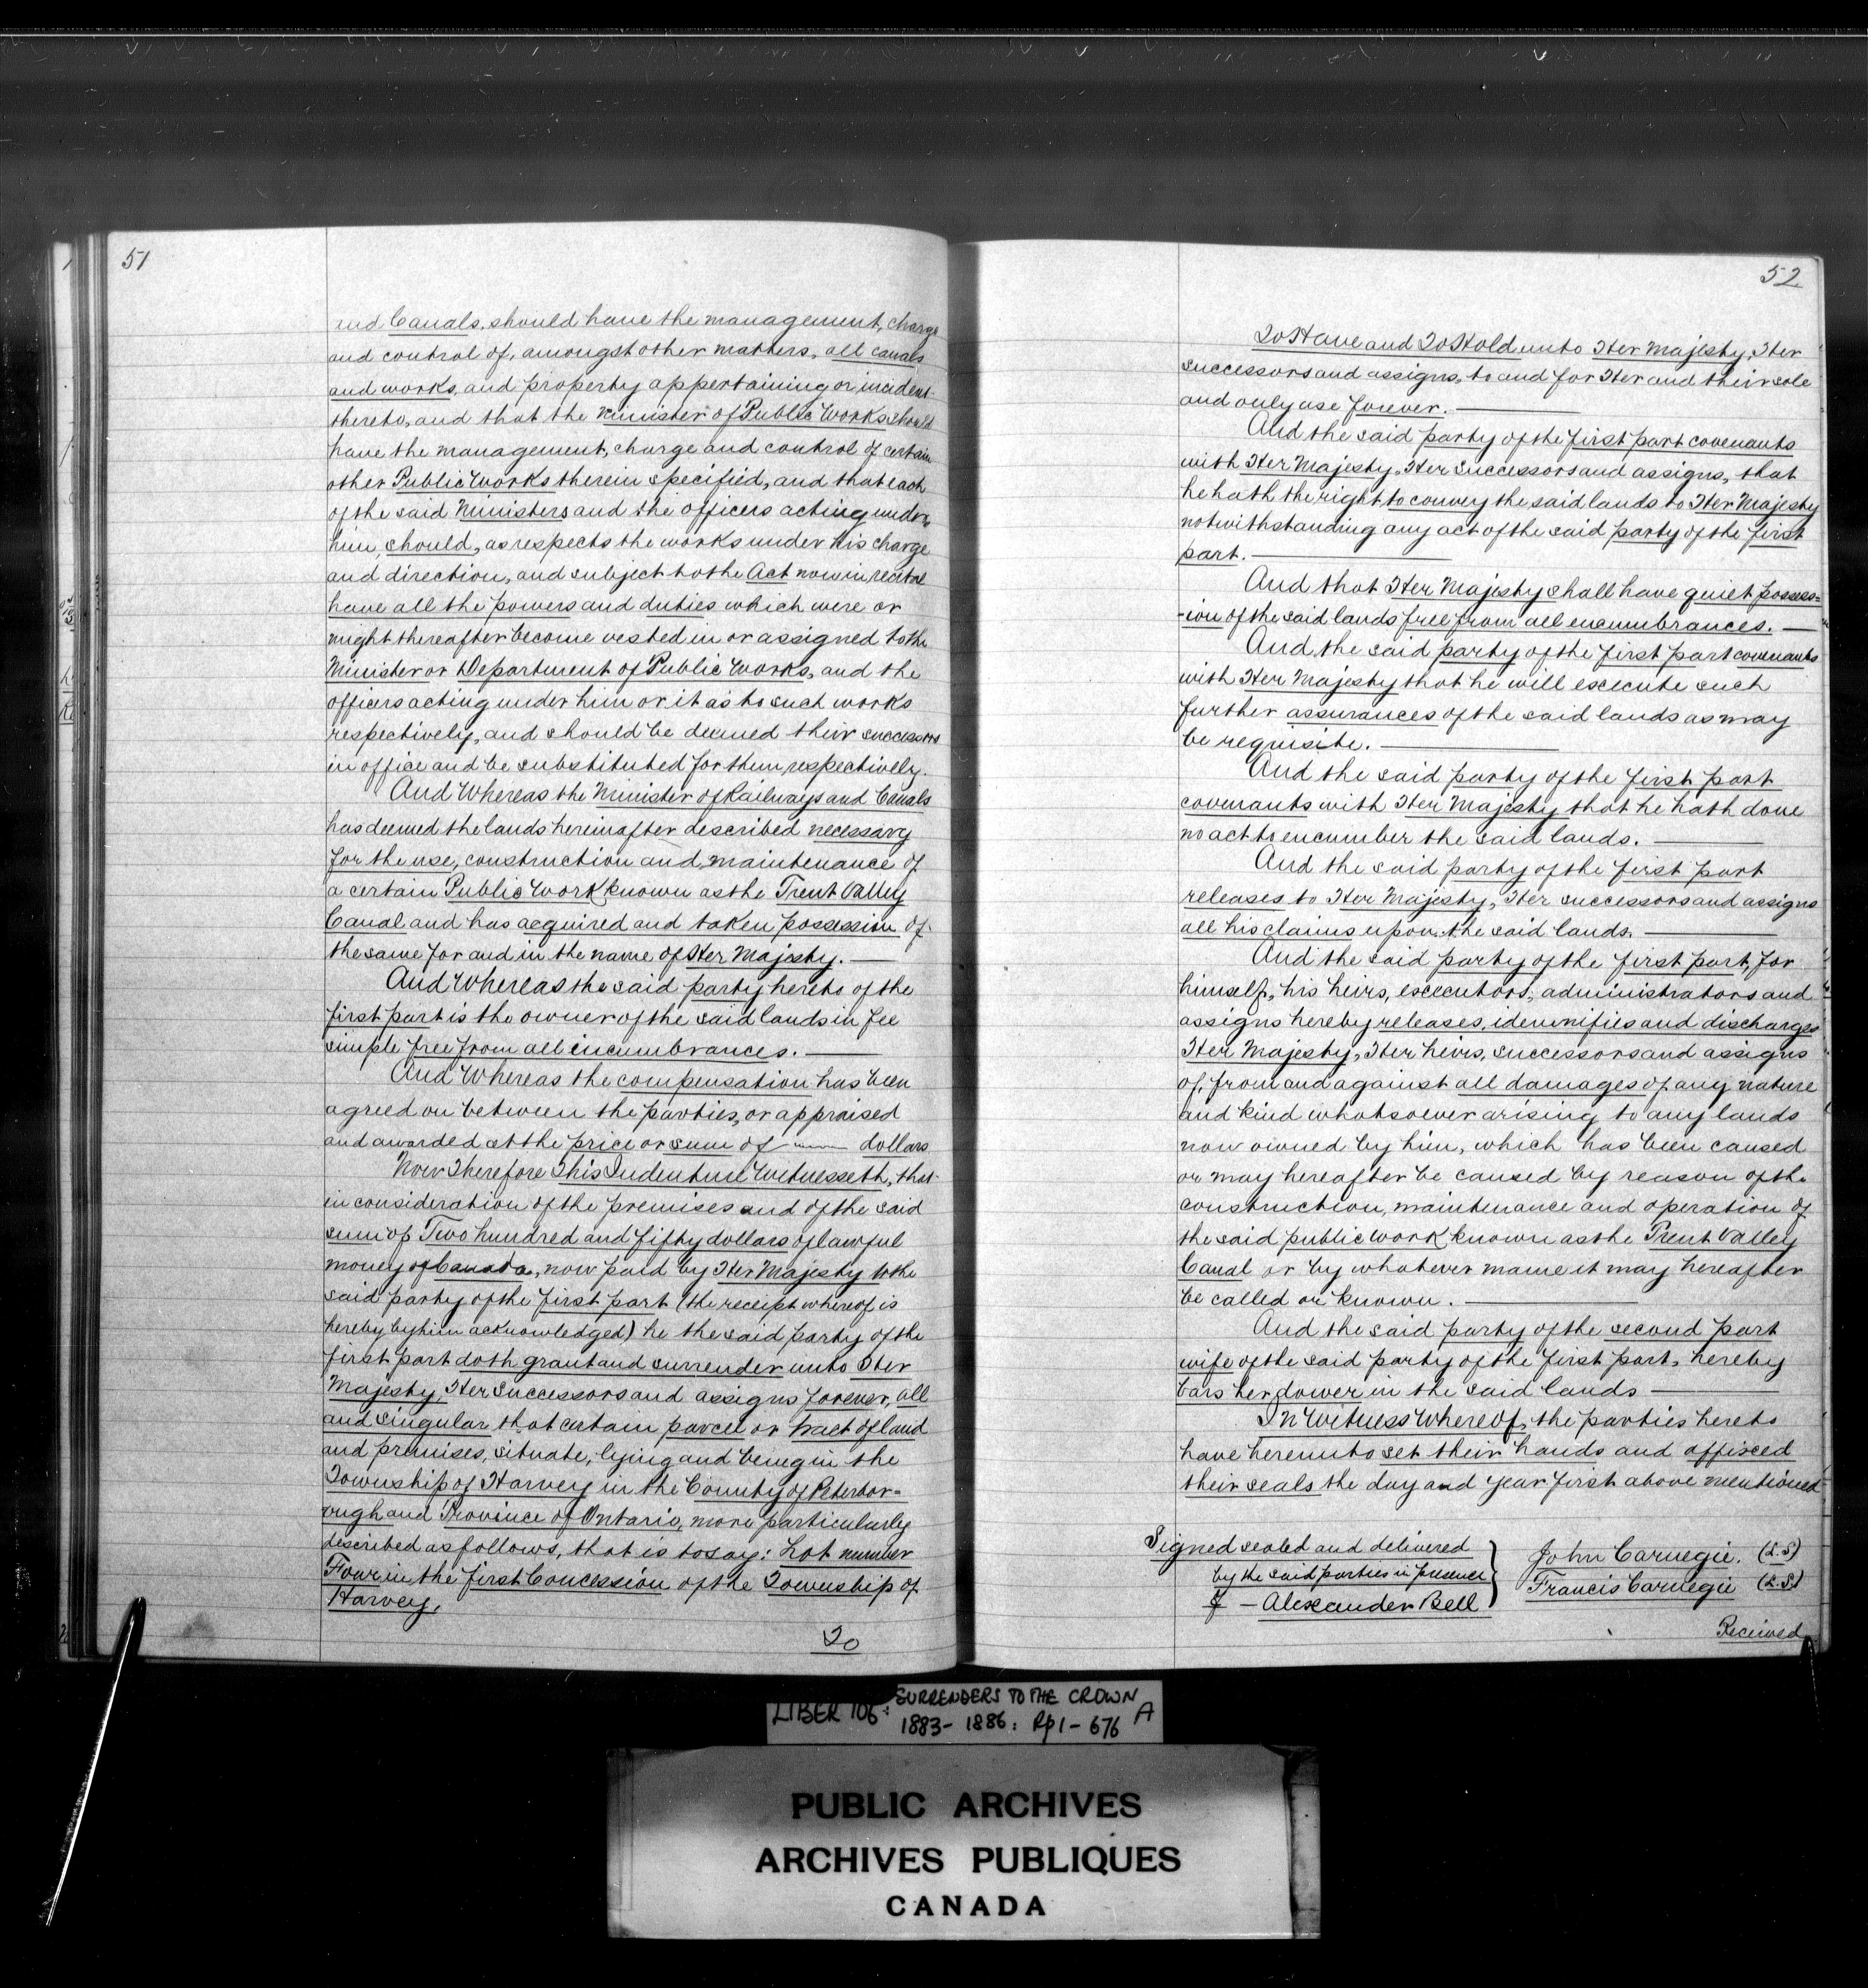 51
and Canals, should have the management, charge
and control of, amongst other matters, all canals
and works, and property appertaining or incident
thereto, and that the Minister of Public Works should
have the management, charge and control of certain
other Public Works therein specified, and that each
of the said Ministers and the officers acting under
him, should, as respects the works under his charge
and direction, and subject to the Act now in recital
have all the powers and duties which were or
might thereafter become vested in or assigned to the
Minister or Department of Public Works, and the
officers acting under him or it as to such works
respectively, and should be deemed their successors
in office and be substituted for them respectively.
And Whereas the Minister of Railways and Canals
has deemed the lands hereinafter described necessary
for the use, construction and maintenance of
a certain Public Work known as the Trent Valley
Canal and has acquired and taken possession of
the same for and in the name of Her Majesty. —
And Whereas the said party hereto of the
first part is the owner of the said lands in fee
simple free from all incumbrances. —
And Whereas the compensation has been
agreed on between the parties, or appraised
and awarded at the price or sum of —— dollars
Now Therefore This Indenture Witnesseth, that
in consideration of the premises and of the said
sum of Two hundred and fifty dollars of lawful
money of Canada, now paid by Her Majesty to the
said party of the first part (the receipt whereof is
hereby by him acknowledged) he the said party of the
first part doth grant and surrender unto Her
Majesty, Her Successors and assigns forever, all
and singular that certain parcel or tract of land
and premises, situate, lying and being in the
Township of Harvey in the County of Peterbor=
ough and Province of Ontario, more particularly
described as follows, that is to say: Lot number
Four in the first Concession of the Township of
Harvey.
To
52
To Have and To Hold unto Her Majesty, Her
successors and assigns, to and for Her and their sole
and only use forever. —
And the said party of the first part covenants
with Her Majesty, Her Successors and assigns, that
he hath the right to convey the said lands to Her Majesty
notwithstanding any act of the said party of the first
part. —
And that Her Majesty shall have quiet possess=
-ion of the said lands free from all encumbrances. —
And the said party of the first part covenants
with Her Majesty that he will execute such
further assurances of the said lands as may
be requisite. —
And the said party of the first part
covenants with Her Majesty that he hath done
no act to encumber the said lands. —
And the said party of the first part
releases to Her Majesty, Her successors and assigns
all his claims upon the said lands. —
And the said party of the first part, for
himself, his heirs, executors, administrators and
assigns hereby releases, idemnifies and discharges
Her Majesty, Her heirs, successors and assigns
of, from and against all damages of any nature
and kind whatsoever arising to any lands
now owned by him, which has been caused
or may hereafter be caused by reason of the
construction, maintenance and operation of
the said public work known as the Trent Valley
Canal or by whatever name it may hereafter
be called or known. —
And the said party of the second part
wife of the said party of the first part, hereby
bars her dower in the said lands —
In Witness Whereof, the parties hereto
have hereunto set their hands and affixed
their seals the day and year first above mentioned
Signed sealed and delivered
by the said parties in presence
of — Alexander Bell
John Carnegie. (L.S)
Francis Carnegie (L.S.)
Received
LIBER 106: SURRENDERS TO THE CROWN A
1883-1886: Pp 1-676
PUBLIC ARCHIVES
ARCHIVES PUBLIQUES
CANADA